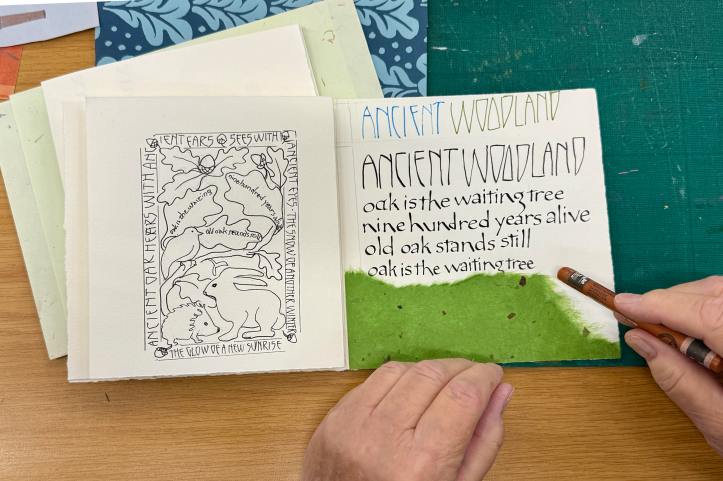 IENT EARS SEES WITH
ANCIENT EYES THE SNOW OF ANOTHER WINTER
THE GLOW OF A NEW SUNRISE
ANCIENT OAK HEARS WITH ANC
nine hundred years
oak is the waiting
old oak stands still
ANCIENT WOODLAND
ANCIENT WOODLAND
oak is the waiting tree
nine hundred years alive
old oak stands still
oak is the waiting tree